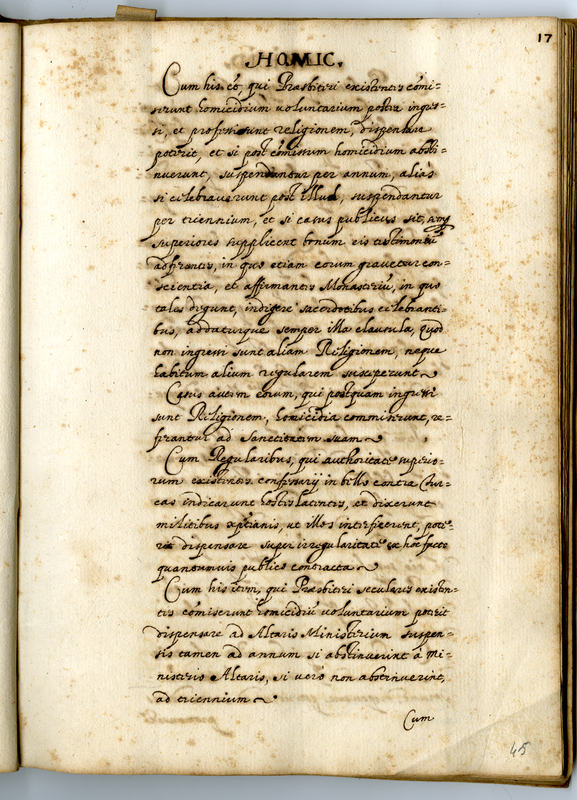 17
HOMIC.
Cum his ēo, qui Præsbiteri existentes cōmi-
serunt homicidium voluntarium postea ingres-
si, et professi sunt religionem, dispensare
poterit, et si post cōmissum homicidium absti-
nuerunt, suspendantur per annum, aliàs
si celebraverunt post illud, suspendantur
per triennium, et si casus publicus sit,
superiores supplicent bonum eis testimoniū
adferentes, in quo etiam eorum gravetur con-
scientia, et affirmantes Monasteriū, in quo
tales degunt, indigere sacerdotibus celebranti-
bus, addaturque semper illa clausula, quod
non ingressi sunt aliam Religionem, neque
habitum alium regularem susceperunt
Casus autem eorum, qui postquam ingressi
sunt Religionem, homicidia commiserunt, re-
ferantur ad Sanctitatem suam
Cum Regularibus, qui authoritate superio-
rum existentes confessarij in bello contra Tur-
cas indicarunt hostes latentes, et dixerunt
militibus xp̄tianis, ut illos interficerent, pote-
rit dispensare super irregularitate ex hoc facto
quantumvis publico contracta
Cum his item, qui Præsbiteri seculares existen-
tes cōmiserunt homicidiū voluntarium poterit
dispensare ad Altaris Ministerium suspen-
sis tamen ad annum si abstinuerint à mi-
nisterio Altaris, si verò non abstinuerint,
ad triennium
Cum
45